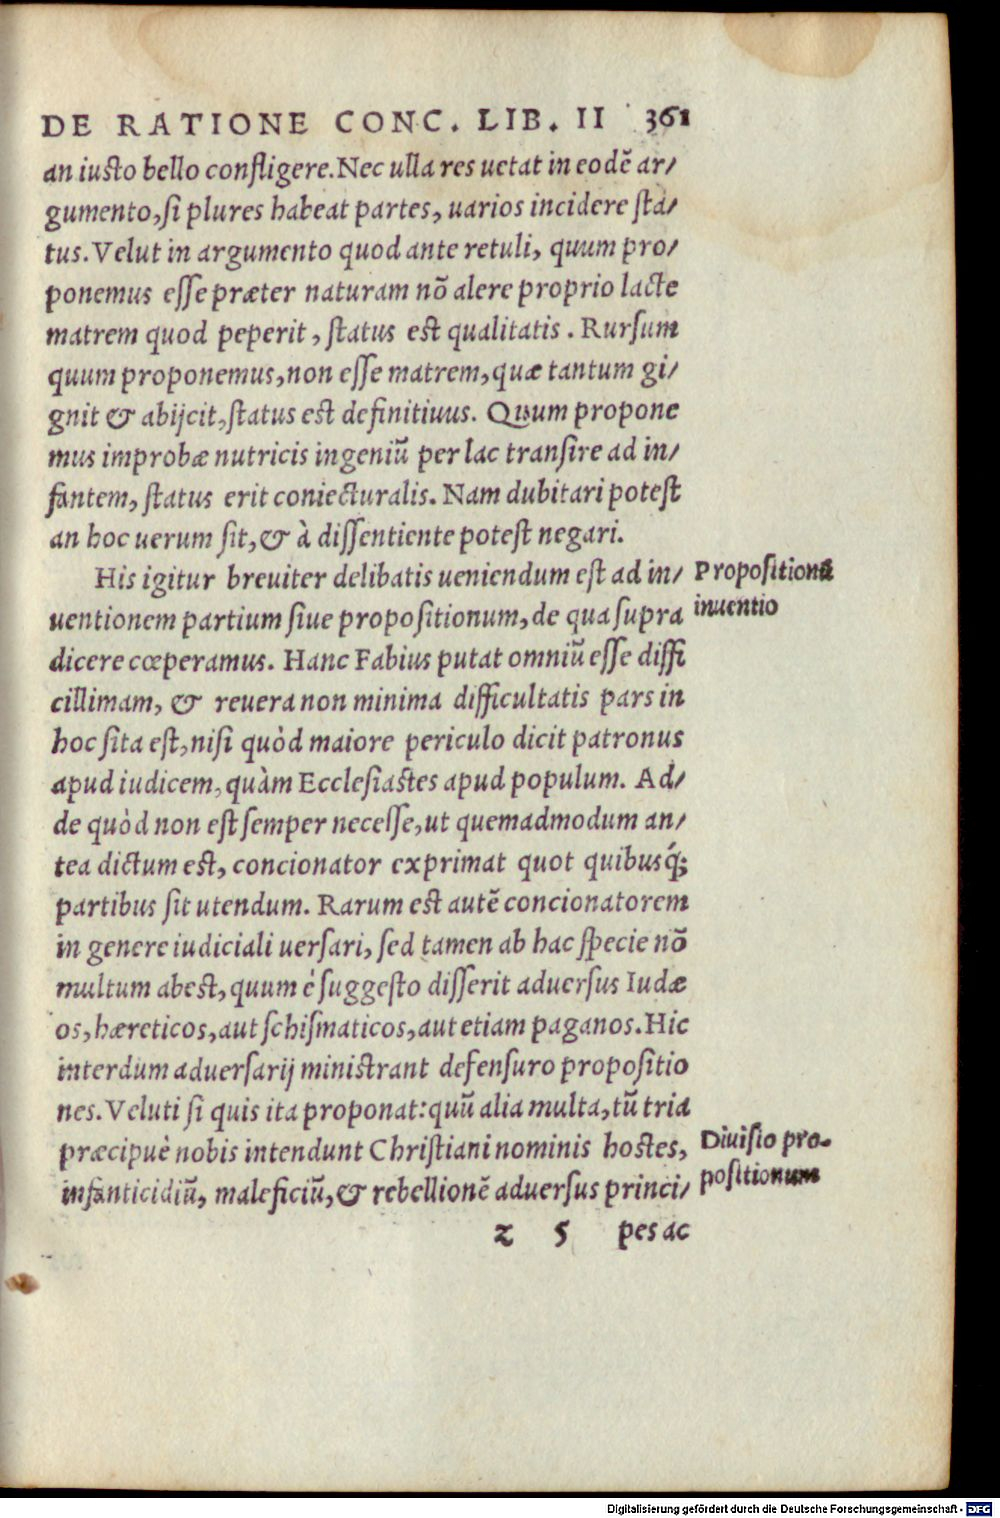 DE RATIONE CONC. LIB. II 361
an iusto bello confligere. Nec ulla res uetat in eodē ar/
gumento, si plures habeat partes, uarios incidere sta/
tus. Velut in argumento quod ante retuli, quum pro/
ponemus esse præter naturam nō alere proprio lacte
matrem quod peperit, status est qualitatis. Rursum
quum proponemus, non esse matrem, quæ tantum gi/
gnit & abijcit, status est definitiuus. Quum propone
mus improbæ nutricis ingeniū per lac transire ad in/
fantem, status erit coniecturalis. Nam dubitari potest
an hoc uerum sit, & à dissentiente potest negari.
His igitur breuiter delibatis ueniendum est ad in/
Propositionū
uentionem partium siue propositionum, de qua supra
inuentio
dicere cœperamus. Hanc Fabius putat omniū esse diffi
cillimam, & reuera non minima difficultatis pars in
hoc sita est, nisi quòd maiore periculo dicit patronus
apud iudicem, quàm Ecclesiastes apud populum. Ad/
de quòd non est semper necesse, ut quemadmodum an/
tea dictum est, concionator exprimat quot quibusq́;
partibus sit utendum. Rarum est autē concionatorem
in genere iudiciali uersari, sed tamen ab hac specie nō
multum abest, quum è suggesto disserit aduersus Iudæ
os, hæreticos, aut schismaticos, aut etiam paganos. Hic
interdum aduersarij ministrant defensuro propositio
nes. Veluti si quis ita proponat: quū alia multa, tū tria
præcipuè nobis intendunt Christiani nominis hostes,
Diuisio pro-
infanticidiū, maleficiū, & rebellionē aduersus princi/
positionum
z 5 pes ac
Digitalisierung gefördert durch die Deutsche Forschungsgemeinschaft - DFG